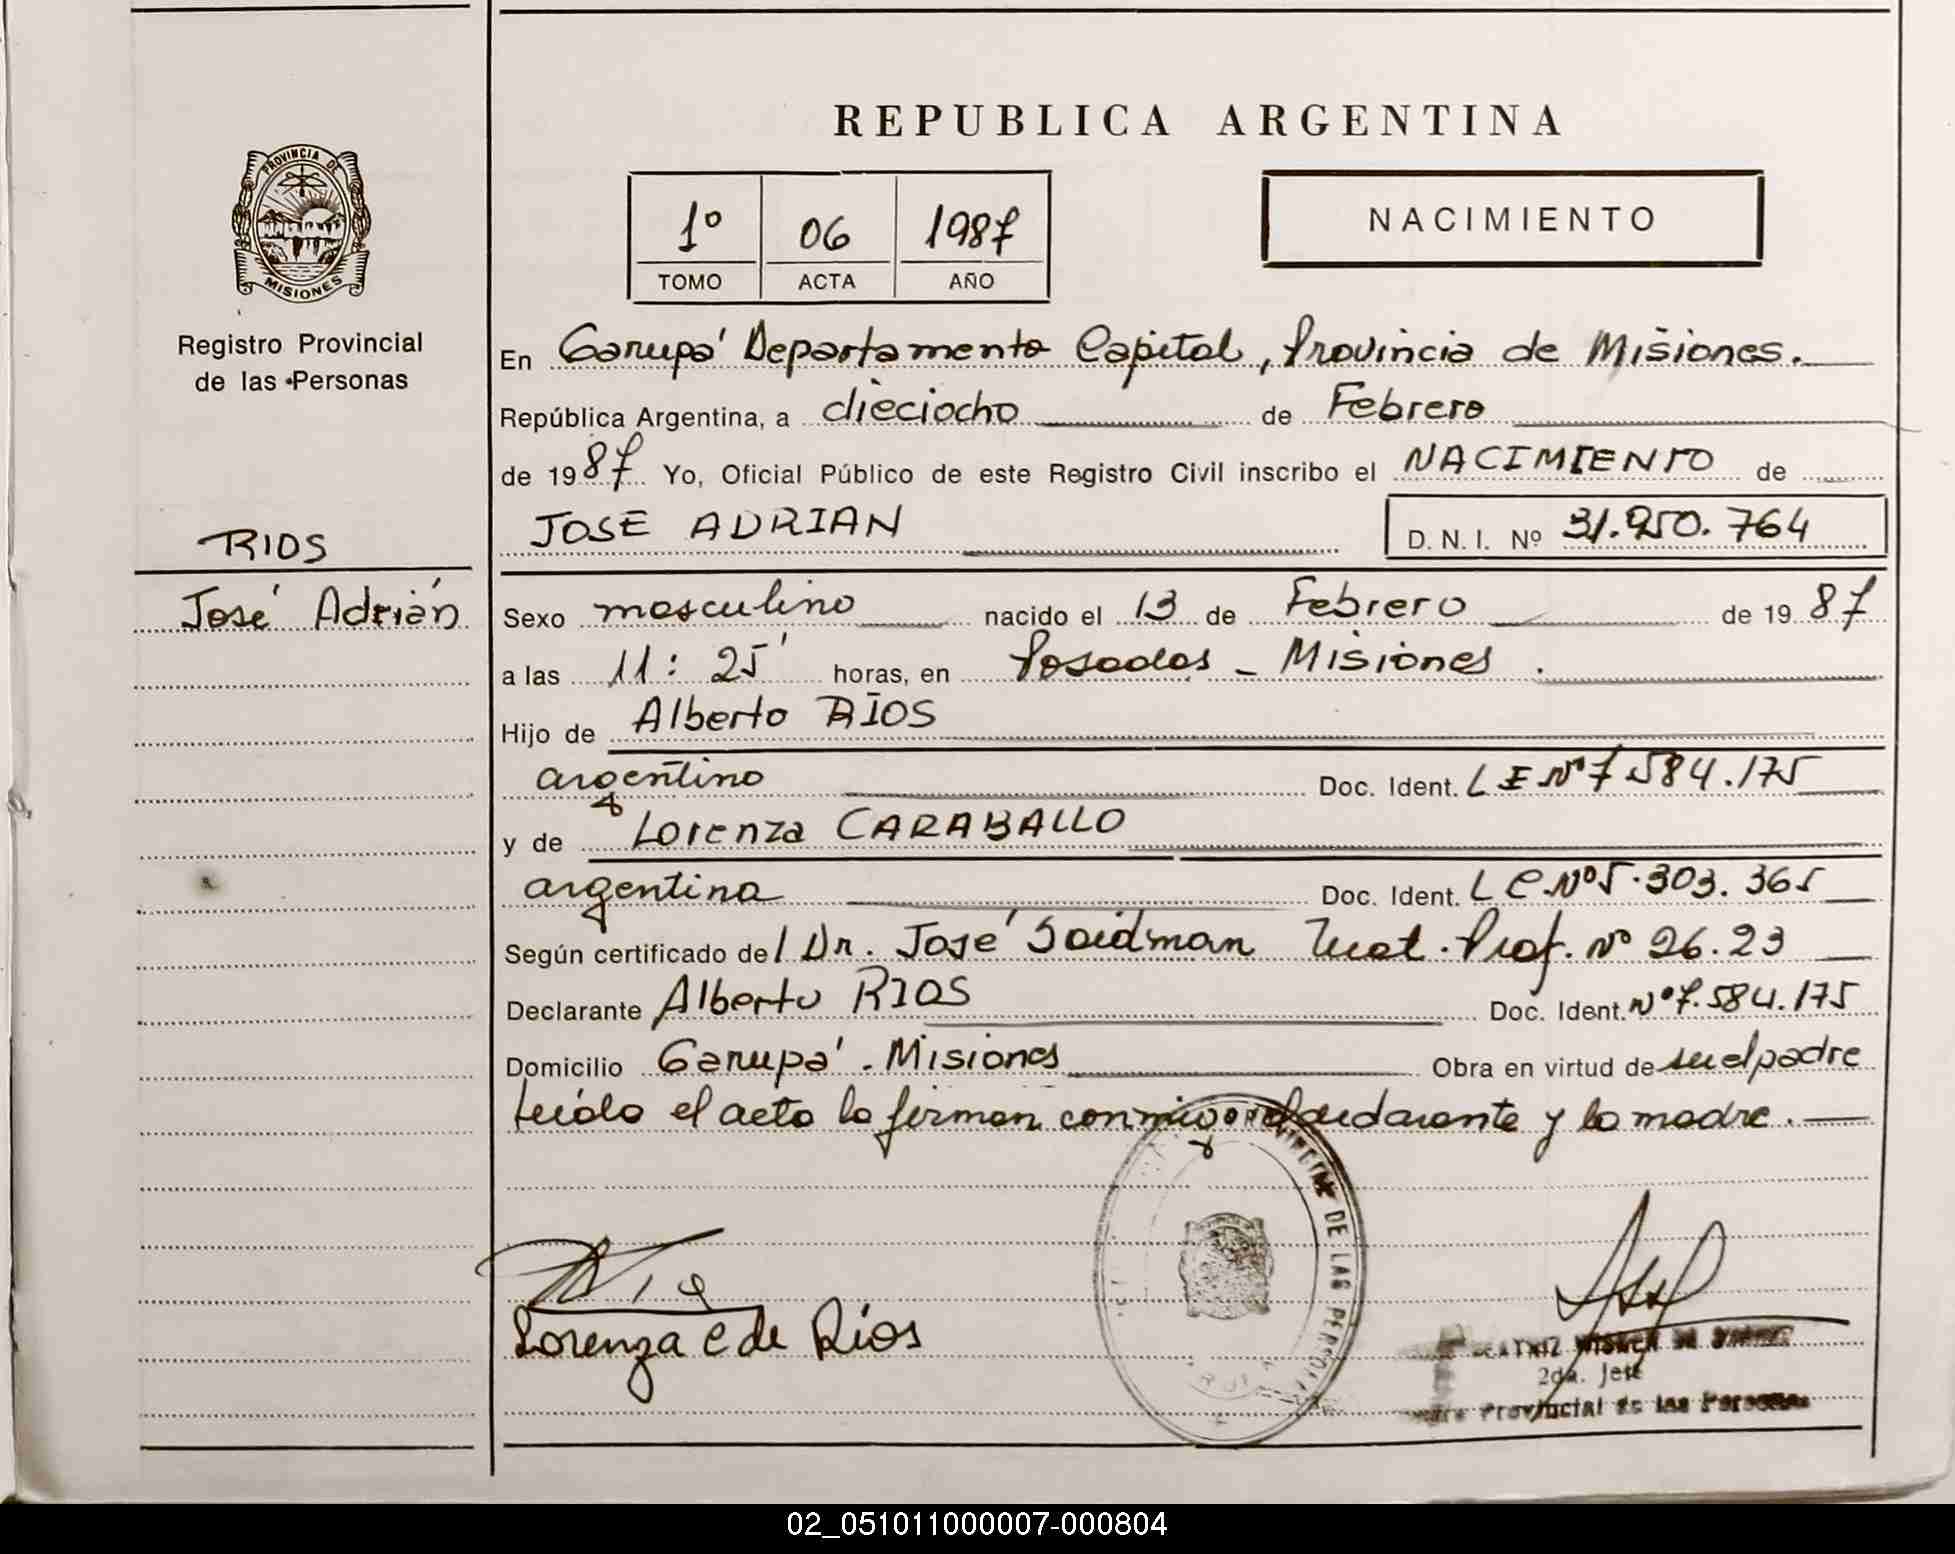 REPUBLICA ARGENTINA
PROVINCIA DE
MISIONES
1º 06 1987
TOMO ACTA AÑO
NACIMIENTO
Registro Provincial
de las Personas
En Garupá Departamento Capital, Provincia de Misiones.
República Argentina, a dieciocho de Febrero
de 1987 Yo, Oficial Público de este Registro Civil inscribo el NACIMIENTO de
JOSE ADRIAN D. N. I. Nº 31.950.764
RIOS
José Adrián
Sexo masculino nacido el 13 de Febrero de 1987
a las 11:25' horas, en Posadas - Misiones.
Hijo de Alberto RÍOS
argentino Doc. Ident. LE Nº 7584.175
y de Lorenza CARABALLO
argentina Doc. Ident. LC. Nº 5.303.365
Según certificado del Dr. José Saidman Mat. Prof. Nº 26.23
Declarante Alberto RIOS Doc. Ident. Nº 7.584.175
Domicilio Garupá. Misiones Obra en virtud de su el padre
Leído el acta la firman conmigo el declarante y la madre.
DE LAS PERSONAS
Lorenza C de Ríos
BEATRIZ
2da. Jefe
Provincial de las Personas
02_051011000007-000804